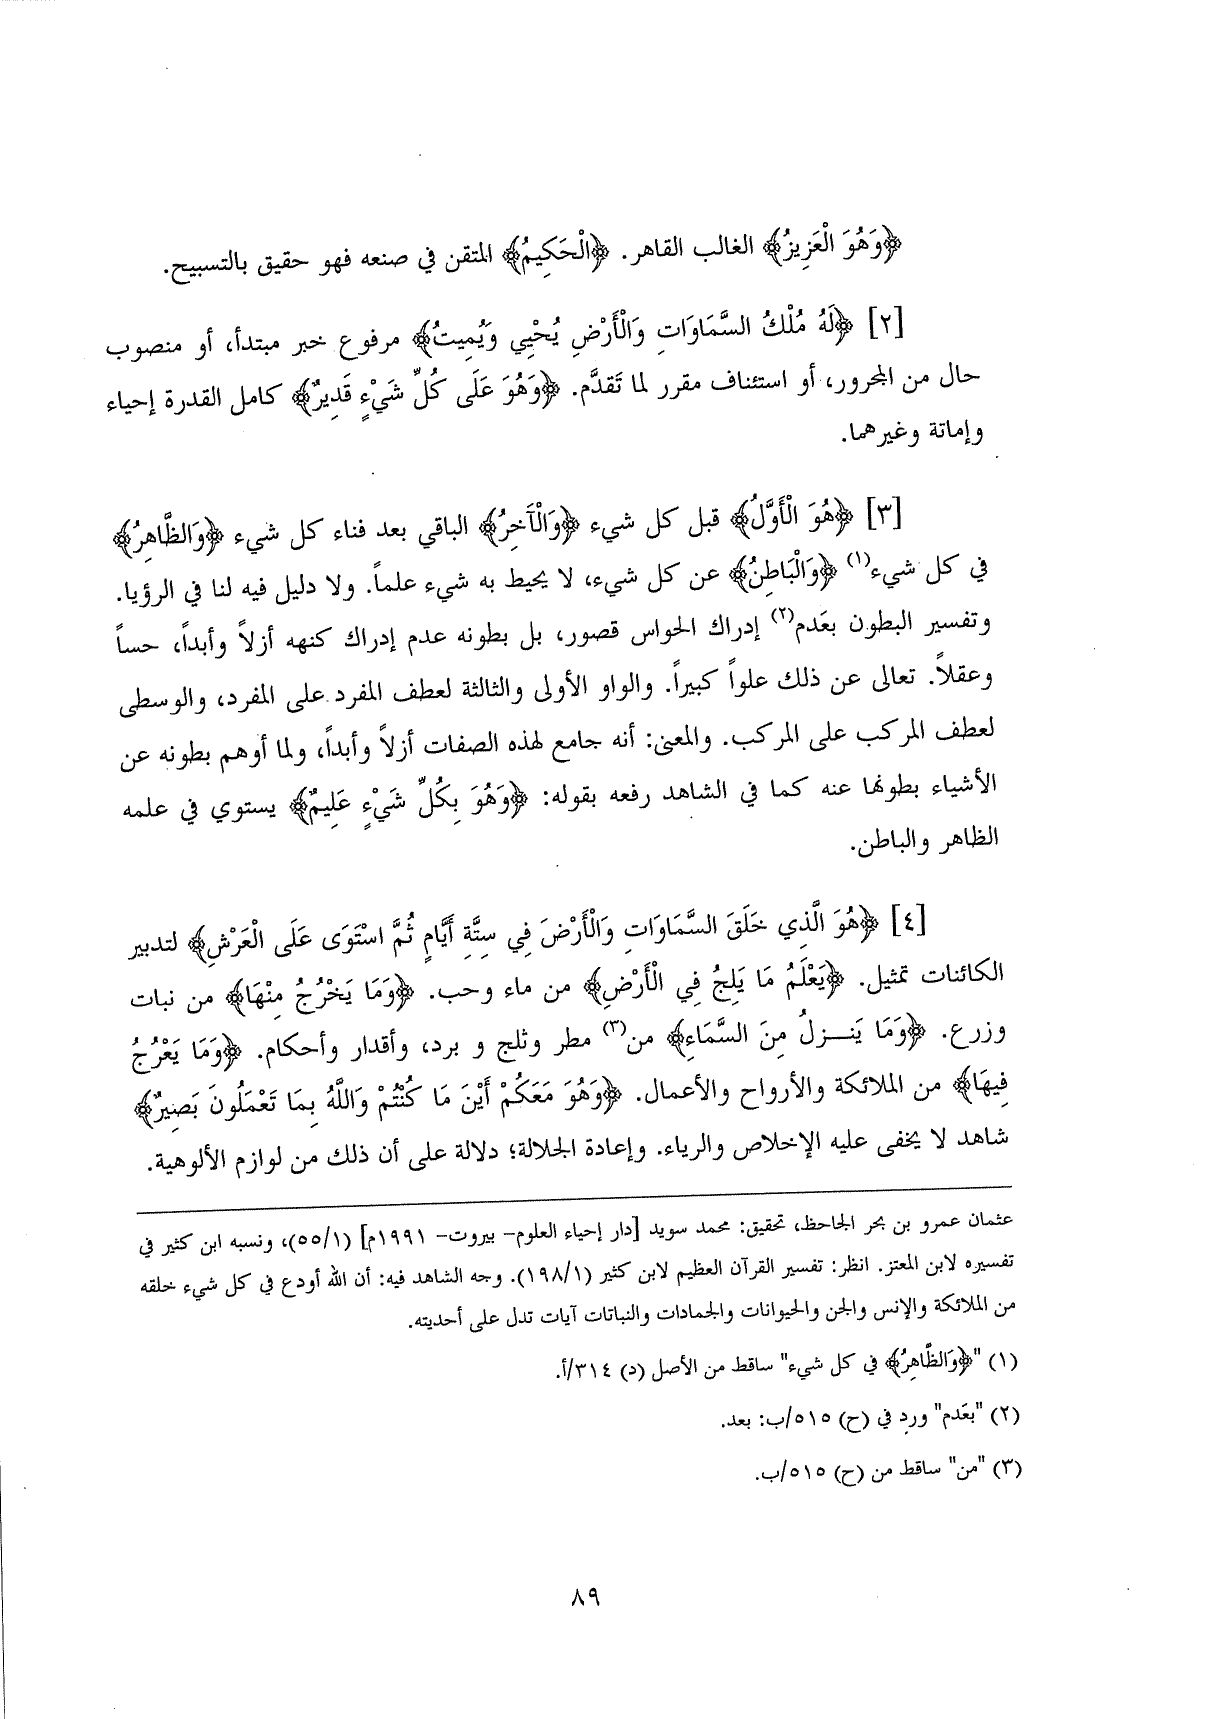 ﴿وَهُوَ الْعَزِيزُ﴾ الغالب القاهر. ﴿الْحَكِيمُ﴾ المتقن في صنعه فهو حقيق بالتسبيح.
[٢] ﴿لَهُ مُلْكُ السَّمَاوَاتِ وَالْأَرْضِ يُحْيِي وَيُمِيتُ﴾ مرفوع خبر مبتدأ، أو منصوب
حال من المجرور، أو استئناف مقرر لما تَقدَّم. ﴿وَهُوَ عَلَى كُلِّ شَيْءٍ قَدِيرٌ﴾ كامل القدرة إحياء
وإماتة وغيرهما.
[٣] ﴿هُوَ الْأَوَّلُ﴾ قبل كل شيء ﴿وَالْآخِرُ﴾ الباقي بعد فناء كل شيء ﴿وَالظَّاهِرُ﴾
في كل شيء(١) ﴿وَالْبَاطِنُ﴾ عن كل شيء، لا يحيط به شيء علماً. ولا دليل فيه لنا في الرؤيا.
وتفسير البطون بعَدم(٢) إدراك الحواس قصور، بل بطونه عدم إدراك كنهه أزلاً وأبداً، حساً
وعقلاً. تعالى عن ذلك علواً كبيراً. والواو الأولى والثالثة لعطف المفرد على المفرد، والوسطى
لعطف المركب على المركب. والمعنى: أنه جامع لهذه الصفات أزلاً وأبداً، ولما أوهم بطونه عن
الأشياء بطونها عنه كما في الشاهد رفعه بقوله: ﴿وَهُوَ بِكُلِّ شَيْءٍ عَلِيمٌ﴾ يستوي في علمه
الظاهر والباطن.
[٤] ﴿هُوَ الَّذِي خَلَقَ السَّمَاوَاتِ وَالْأَرْضَ فِي سِتَّةِ أَيَّامٍ ثُمَّ اسْتَوَى عَلَى الْعَرْشِ﴾ لتدبير
الكائنات تمثيل. ﴿يَعْلَمُ مَا يَلِجُ فِي الْأَرْضِ﴾ من ماء وحب. ﴿وَمَا يَخْرُجُ مِنْهَا﴾ من نبات
وزرع. ﴿وَمَا يَنــزلُ مِنَ السَّمَاءِ﴾ من(٣) مطر وثلج و برد، وأقدار وأحكام. ﴿وَمَا يَعْرُجُ
فِيهَا﴾ من الملائكة والأرواح والأعمال. ﴿وَهُوَ مَعَكُمْ أَيْنَ مَا كُنْتُمْ وَاللَّهُ بِمَا تَعْمَلُونَ بَصِيرٌ﴾
شاهد لا يخفى عليه الإخلاص والرياء. وإعادة الجلالة؛ دلالة على أن ذلك من لوازم الألوهية.
عثمان عمرو بن بحر الجاحظ، تحقيق: محمد سويد [دار إحياء العلوم- بيروت- ١٩٩١م] (٥٥/١)، ونسبه ابن كثير في
تفسيره لابن المعتز. انظر: تفسير القرآن العظيم لابن كثير (١٩٨/١). وجه الشاهد فيه: أن الله أودع في كل شيء خلقه
من الملائكة والإنس والجن والحيوانات والجمادات والنباتات آيات تدل على أحديته.
(١) "﴿وَالظَّاهِرُ﴾ في كل شيء" ساقط من الأصل (د) ٣١٤/أ.
(٢) "بعَدم" ورد في (ح) ٥١٥/ب: بعد.
(٣) "من" ساقط من (ح) ٥١٥/ب.
٨٩